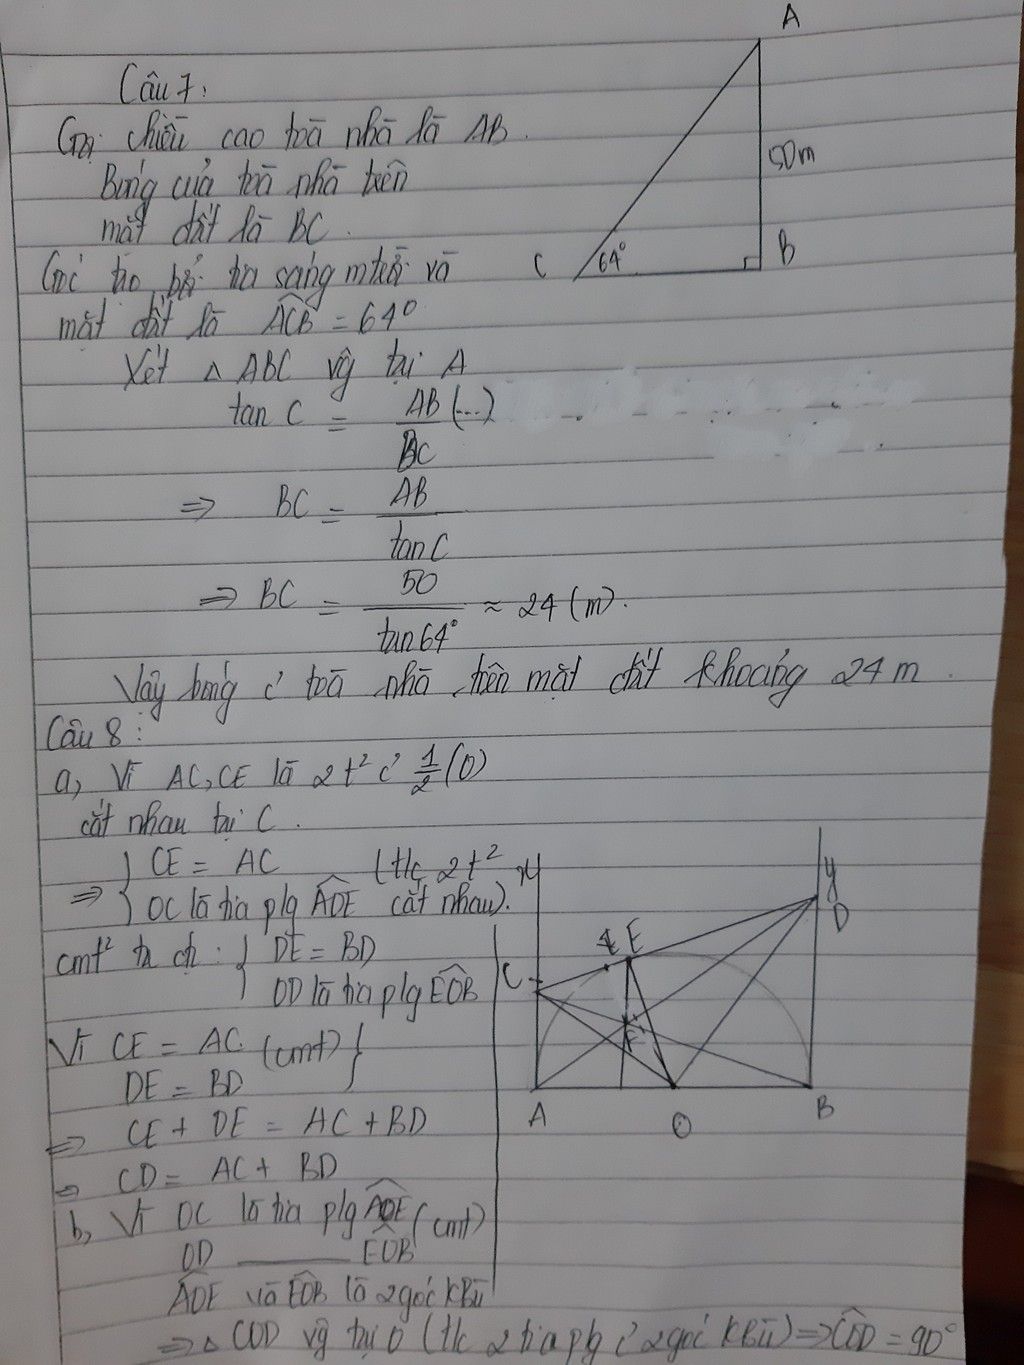 Câu 7:
Gọi chiều cao toà nhà là AB.
Bóng của toà nhà trên
mặt đất là BC.
Góc tạo bởi tia sáng mtrời và
mặt đất là ACB = 64°
Xét △ ABC vg tại A
tan C = AB/BC (...)
⇒ BC = AB/tan C
⇒ BC = 50/tan 64° ≈ 24 (m).
Vậy bóng c' toà nhà trên mặt đất khoảng 24 m.
A
50m
B
C
64°
Câu 8:
a, Vì AC, CE là 2 t² c' 1/2 (O)
cắt nhau tại C.
⇒ { CE = AC (t/c 2 t²
OC là tia plg AOE cắt nhau).
cmt² ta cị: { DE = BD
OD là tia plg EOB
Vì CE = AC (cmt) }
DE = BD
⇒ CE + DE = AC + BD
⇒ CD = AC + BD
x
y
D
E
C
F
A
O
B
b, Vì OC là tia plg AOE (cmt)
OD ——— EOB
AOE và EOB là 2 góc KBù
⇒ △ COD vg tại O (t/c 2 tia plg c' 2 góc KBù) ⇒ COD = 90°